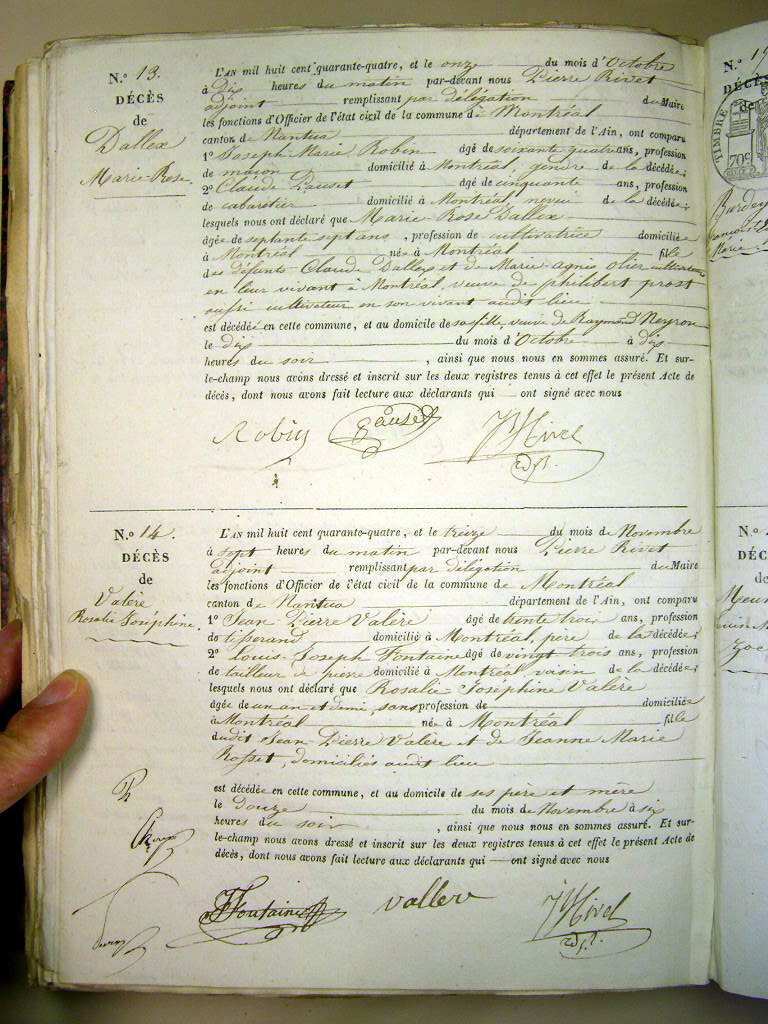 N.o 13.
DÉCÈS
de
Dallex
Marie-Rose
L'AN mil huit cent quarante-quatre, et le onze du mois d'Octobre
à Dix heures du matin par-devant nous Pierre Rivet
adjoint remplissant par délégation du Maire
les fonctions d'Officier de l'état civil de la commune de Montréal
canton de Nantua département de l'Ain, ont comparu
1o Joseph Marie Robin âgé de soixante quatre ans, profession
de maçon domicilié à Montréal, gendre de la décédée;
2o Claude Pauset âgé de cinquante ans, profession
de cabaretier domicilié à Montréal neveu de la décédée;
lesquels nous ont déclaré que Marie-Rose Dallex
âgée de septante sept ans, profession de cultivatrice domiciliée
à Montréal née à Montréal fille
des défunts Claude Dallex et de Marie agnie olier cultivateurs
en leur vivant à Montréal, veuve de philibert prost
aussi cultivateur en son vivant audit lieu
est décédée en cette commune, et au domicile de sa fille, veuve de Raymond Neyron
le dix du mois d'Octobre à dix
heures du soir, ainsi que nous nous en sommes assuré. Et sur-
le-champ nous avons dressé et inscrit sur les deux registres tenus à cet effet le présent Acte de
décès, dont nous avons fait lecture aux déclarants qui ont signé avec nous
Robin Pauset Rivet
adjt.
N.o 14.
DÉCÈS
de
Valère
Rosalie Joséphine
L'AN mil huit cent quarante-quatre, et le treize du mois de Novembre
à sept heures du matin par-devant nous Pierre Rivet
adjoint remplissant par délégation du Maire
les fonctions d'Officier de l'état civil de la commune de Montréal
canton de Nantua département de l'Ain, ont comparu
1o Jean-Pierre Valère âgé de trente trois ans, profession
de tisserand domicilié à Montréal, père de la décédée;
2o Louis-Joseph Fontaine âgé de vingt trois ans, profession
de tailleur de pierre domicilié à Montréal voisin de la décédée;
lesquels nous ont déclaré que Rosalie Joséphine Valère
âgée de un an et demi, sans profession de domiciliée
à Montréal née à Montréal fille
dudit Jean-Pierre Valère et de Jeanne Marie
Rosset, domiciliés audit lieu
est décédée en cette commune, et au domicile de ses père et mère
le douze du mois de Novembre à six
heures du soir, ainsi que nous nous en sommes assuré. Et sur-
le-champ nous avons dressé et inscrit sur les deux registres tenus à cet effet le présent Acte de
décès, dont nous avons fait lecture aux déclarants qui ont signé avec nous
Fontaine vallere Rivet
adjt.
N.o
DÉCÈS
de
TIMBRE
70c
N.o
DÉC
de